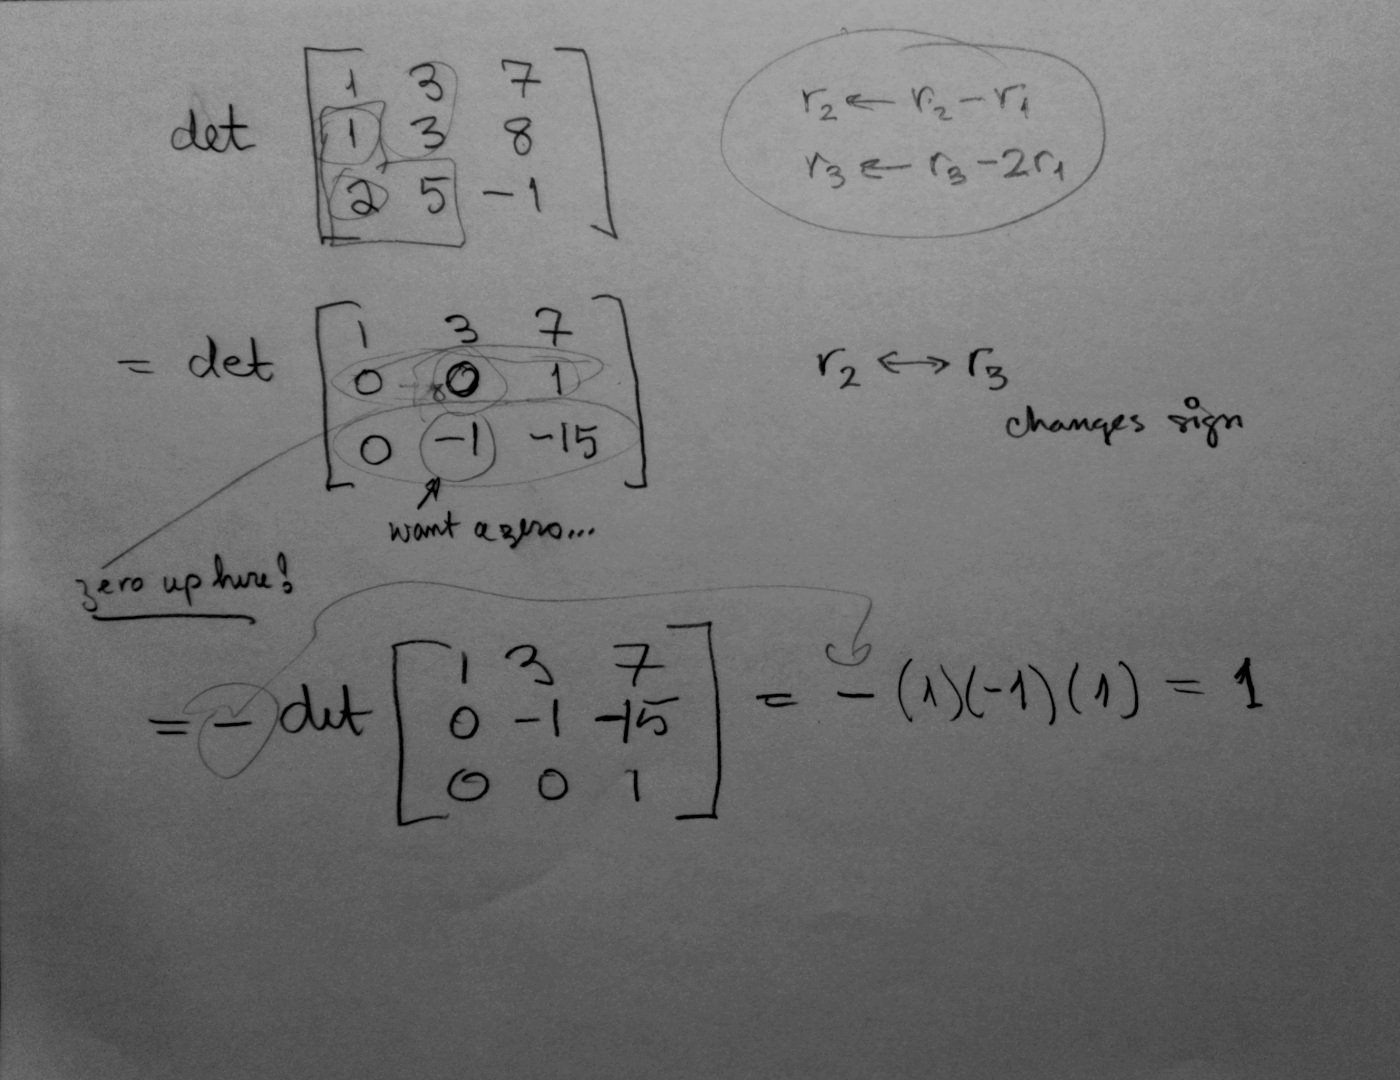 det [ 1 3 7
1 3 8
2 5 -1 ]
r₂ ← r₂ - r₁
r₃ ← r₃ - 2r₁
= det [ 1 3 7
0 0 1
0 -1 -15 ]
r₂ ↔ r₃
changes sign
want a zero...
zero up here!
= - det [ 1 3 7
0 -1 -15
0 0 1 ] = - (1)(-1)(1) = 1